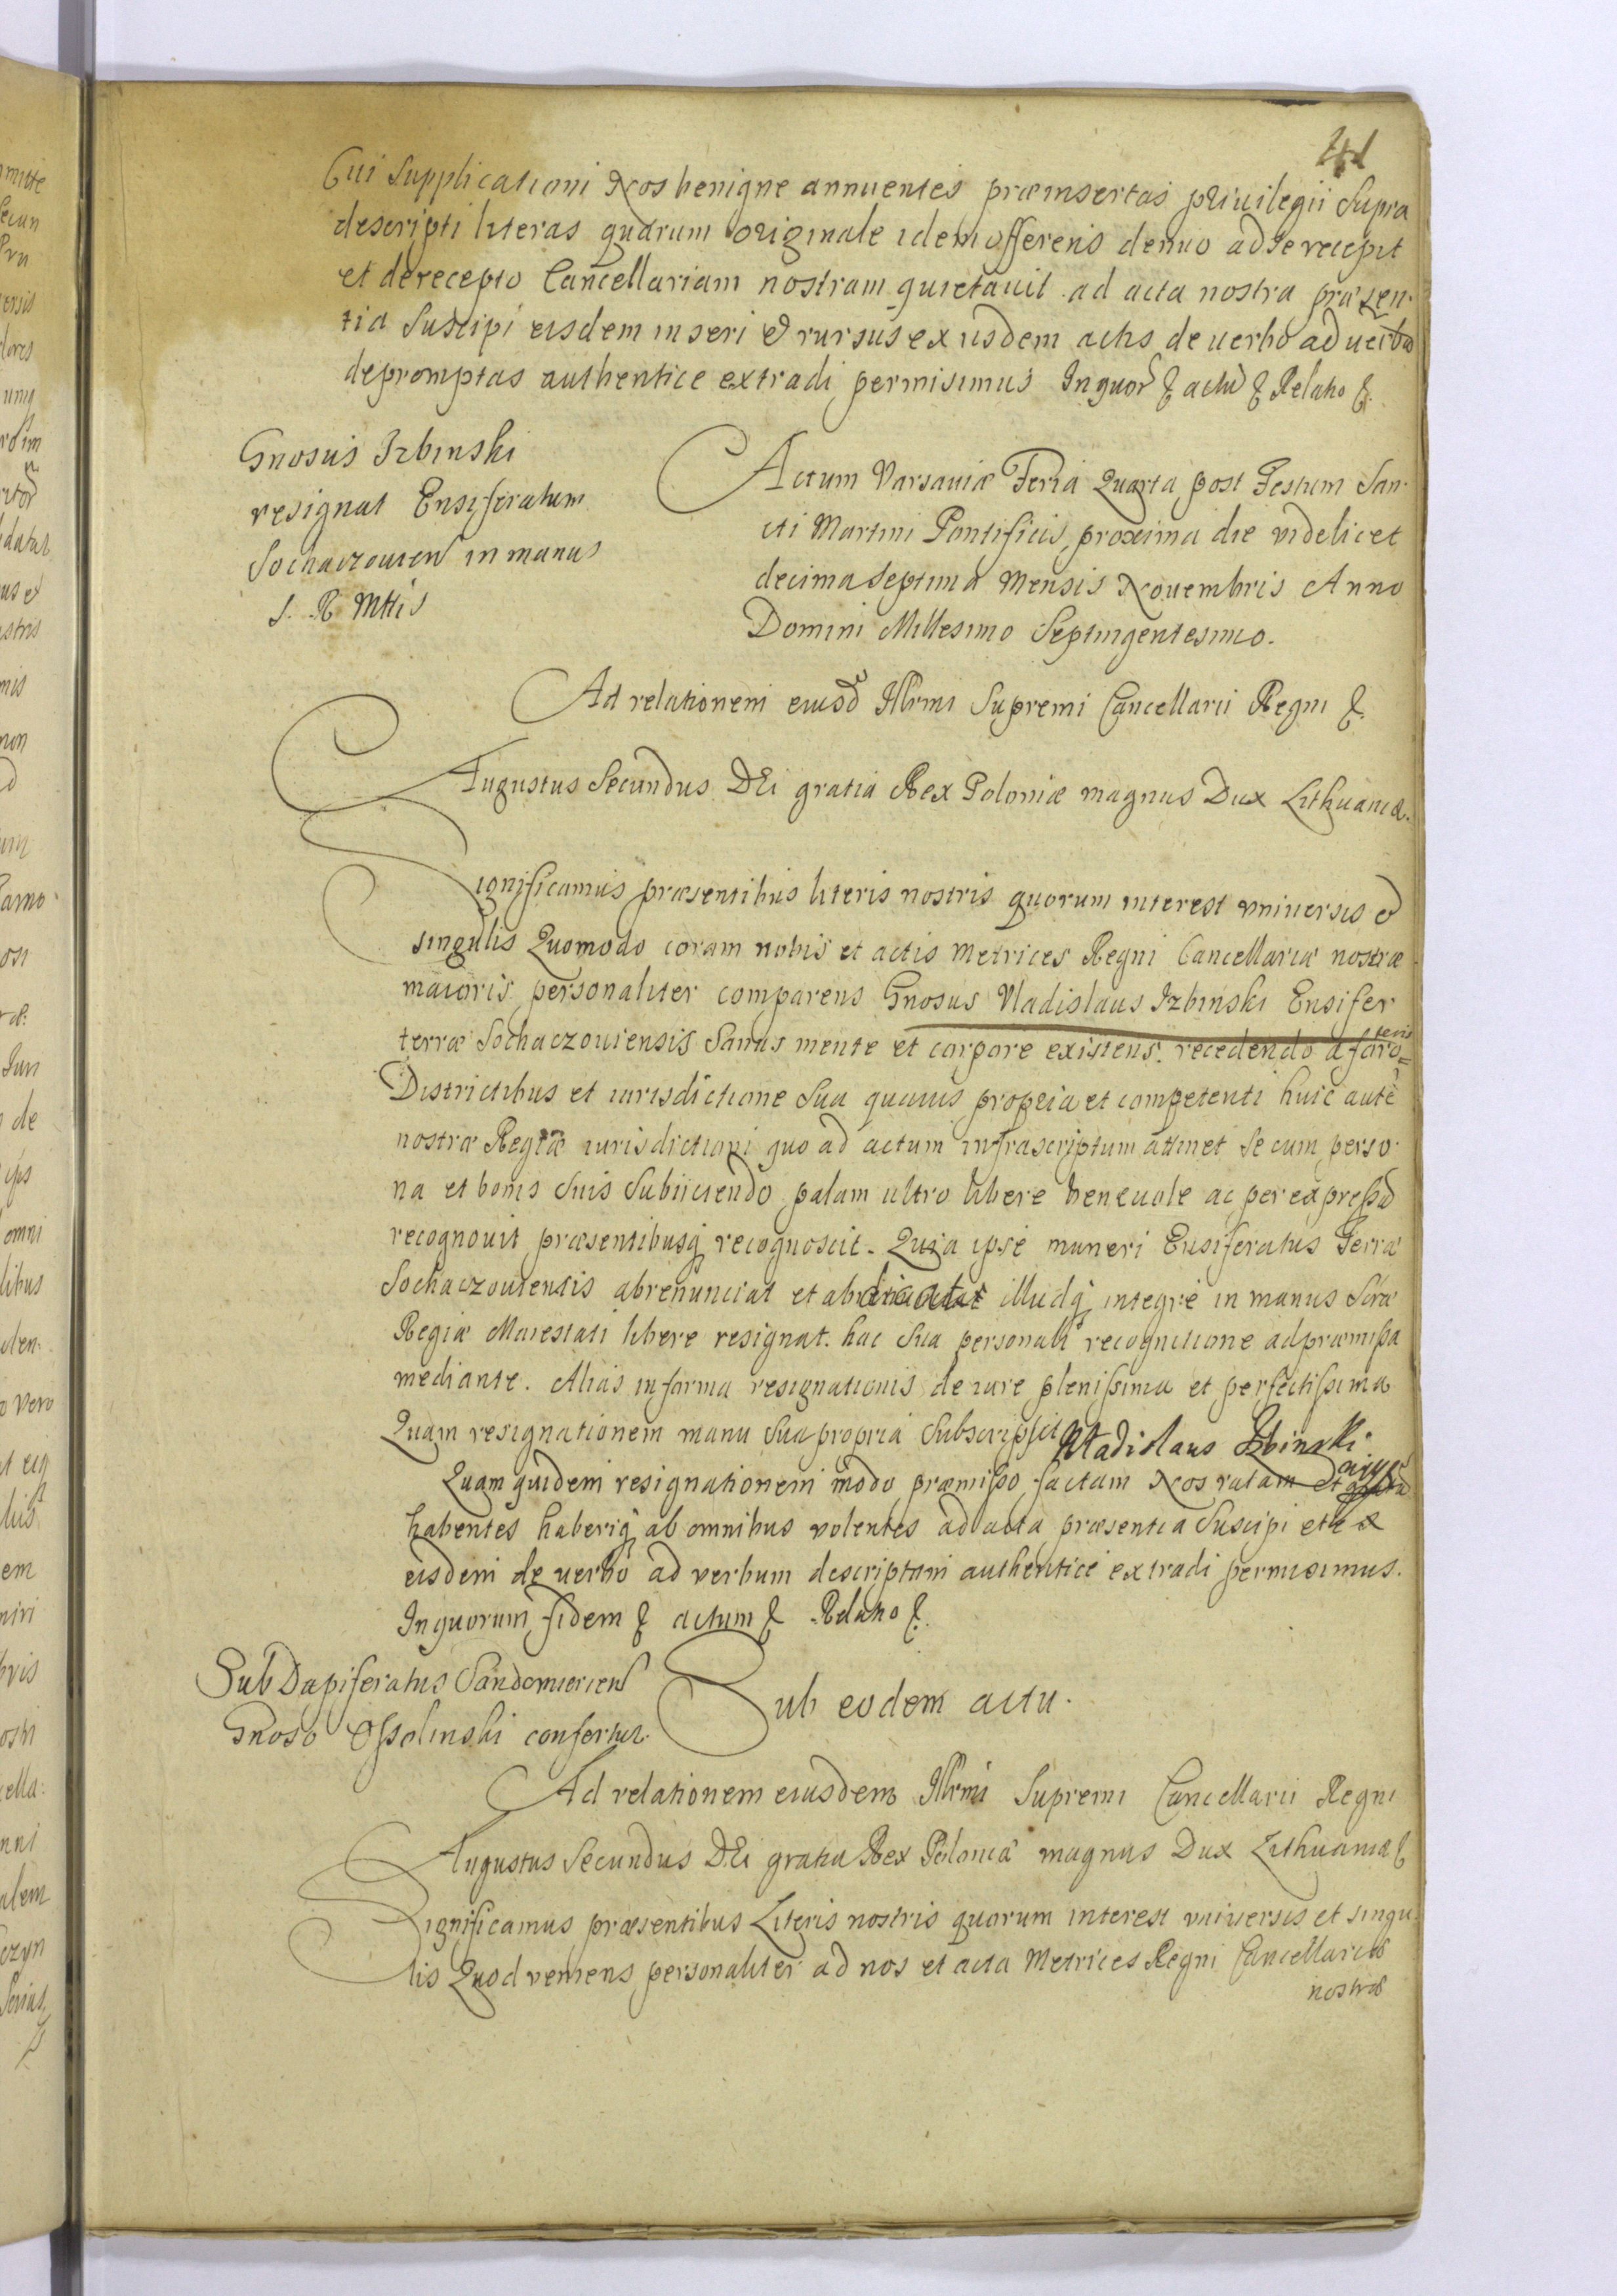 41
Cui Supplicationi Nos benigne annuentes præinsertas priuilegii Supra
descripti literas quarum originale idem offerens denuo ad se recepit
et de recepto Cancellariam nostram quietauit ad acta nostra præsen-
tia Suscipi eisdem inseri & rursus ex iisdem actis de uerbo ad uerbū
depromptas authentice extradi permisimus In quor & actū & Relatio &.
Gnosus Izbinski
resignat Ensiferatum
Sochaczouien in manus
S. R Mttis
Actum Varsauiæ Feria Quarta post Festum San-
cti Martini Pontificis proxima die videlicet
decima septima Mensis Nouembris Anno
Domini Millesimo Septingentesimo.
Ad relationem eiusd Illrmi Supremi Cancellarii Regni &.
Augustus Secundus DEi gratia Rex Poloniæ magnus Dux Lithuaniæ.
Significamus præsentibus literis nostris quorum interest vniuersis &
singulis Quomodo coram nobis et actis Metrices Regni Cancellariæ nostræ
maioris personaliter comparens Gnosus Vladislaus Izbinski Ensifer
terræ Sochaczouiensis Sanus mente et corpore existens. recedendo a foro= teris
Districtibus et iurisdictione Sua quauis propria et competenti huic autē
nostræ Regiæ iurisdictioni quo ad actum infrascriptum attinet Se cum perso-
na et bonis Suis Subiiciendo palam ultro libere beneuole ac per expressū
recognouit præsentibusq recognoscit. Quia ipse muneri Ensiferatus Terræ
Sochaczouiensis abrenunciat et abdicat illudq integre in manus Sræ
Regiæ Maiestati libere resignat. hac Sua personali recognitione ad præmissa
mediante. Alias in forma resignationis de iure plenissima et perfectissima
Quam resignationem manu Sua propria Subscripsit Vladislaus Izbinski
Quam quidem resignationem modo præmisso factam Nos ratam et
habentes haberiq ab omnibus volentes ad acta præsentia Suscipi et ex
eisdem de uerbo ad verbum descriptam authentice extradi permisimus.
In quorum fidem & actum & Relatio &.
SubDapiferatus Sandomirien
Gnoso Ossolinski confertur.
Sub eodem actu.
Ad relationem eiusdem Illrmi Supremi Cancellarii Regni
Augustus Secundus DEi gratia Rex Poloniæ magnus Dux Lithuaniæ &
Significamus præsentibus Literis nostris quorum interest vniuersis et singu-
lis Quod veniens personaliter ad nos et acta Metrices Regni Cancellariæ
nostræ